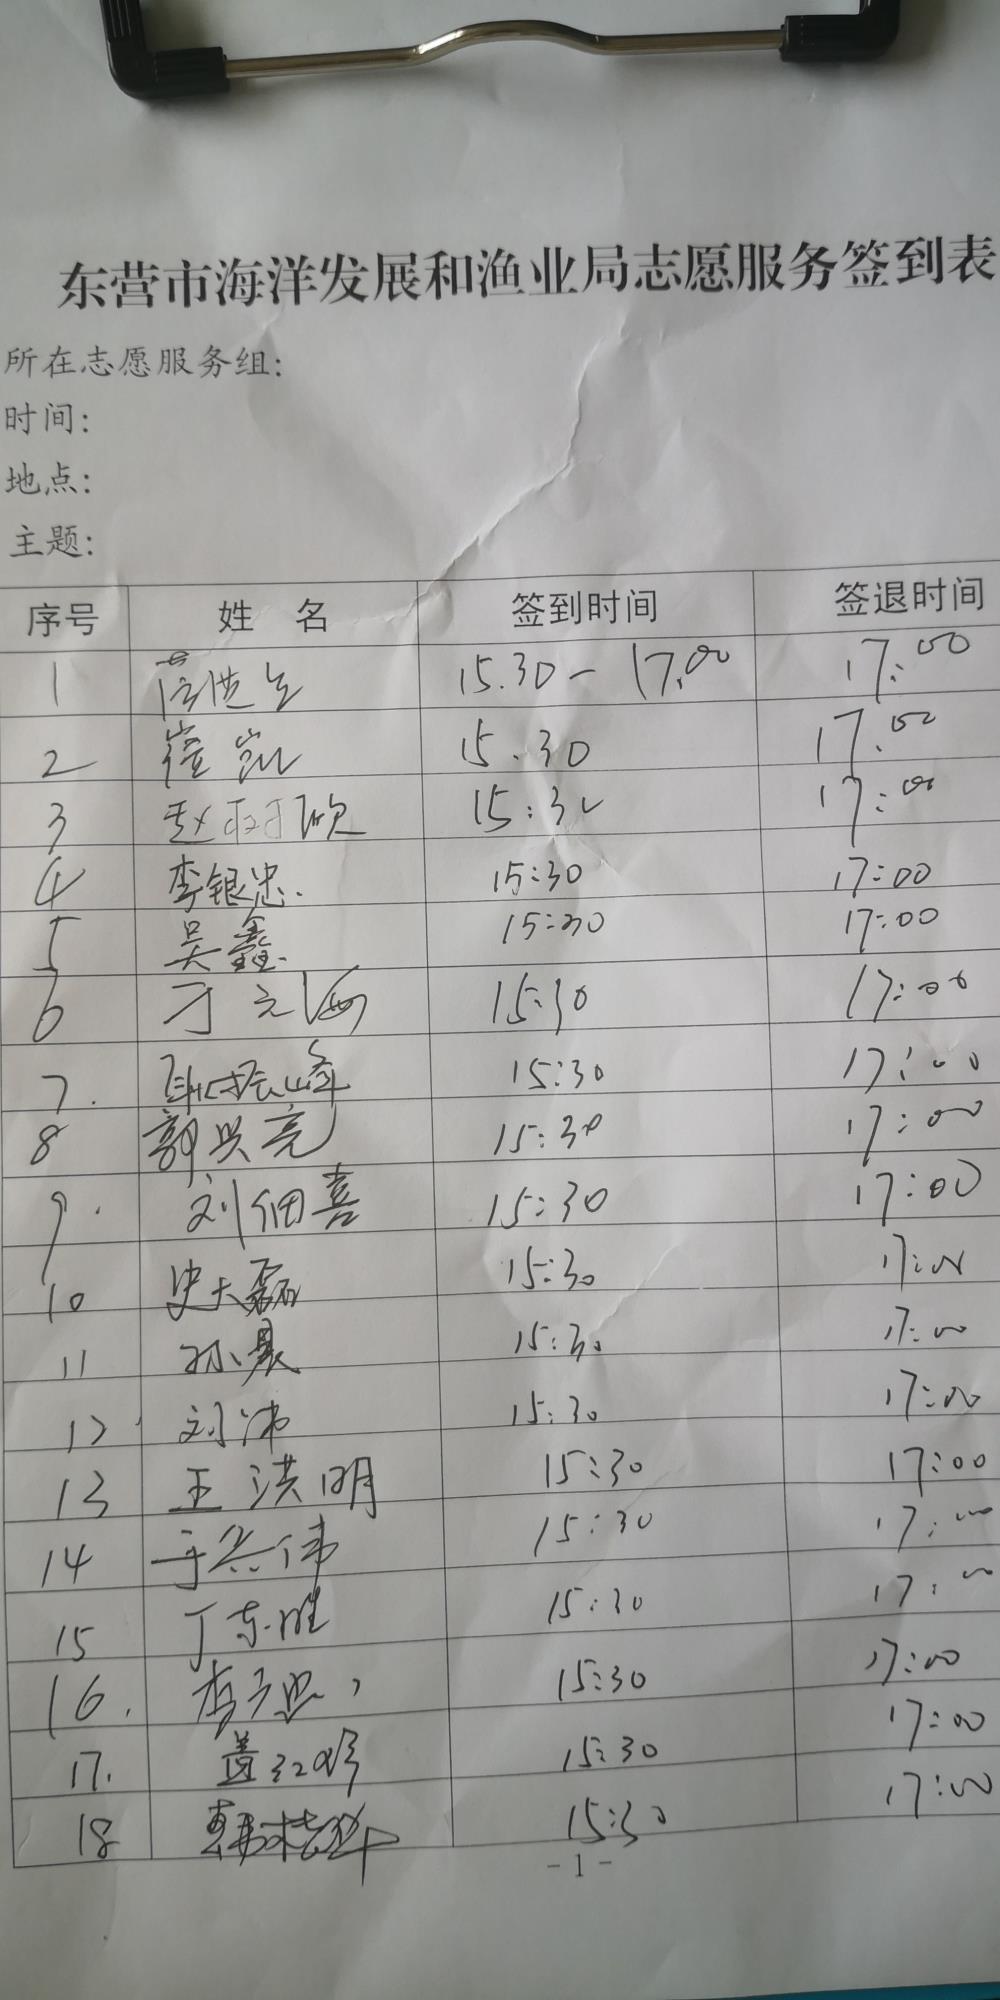 东营市海洋发展和渔业局志愿服务签到表
所在志愿服务组:
时间:
地点:
主题:
序号 姓 名 签到时间 签退时间
1 15.30- 17.00 17:00
2 崔凯 15.30 17.00
3 赵树欣 15:30 17:00
4 李银忠. 15:30 17:00
5 吴鑫. 15:30 17:00
6 刁元海 15:30 17:00
7. 耿振峰 15:30 17:00
8 郭兴亮 15:30 17:00
9. 刘佃喜 15:30 17:00
10 史大磊 15:30 17:00
11 孙晨 15:30 17:00
12 刘沛 15:30 17:00
13 王洪明 15:30 17:00
14 于兴伟 15:30 17:00
15 丁东胜 15:30 17:00
16. 15:30 17:00
17. 盖红珍 15:30 17:00
18 15:30 17:00
-1-